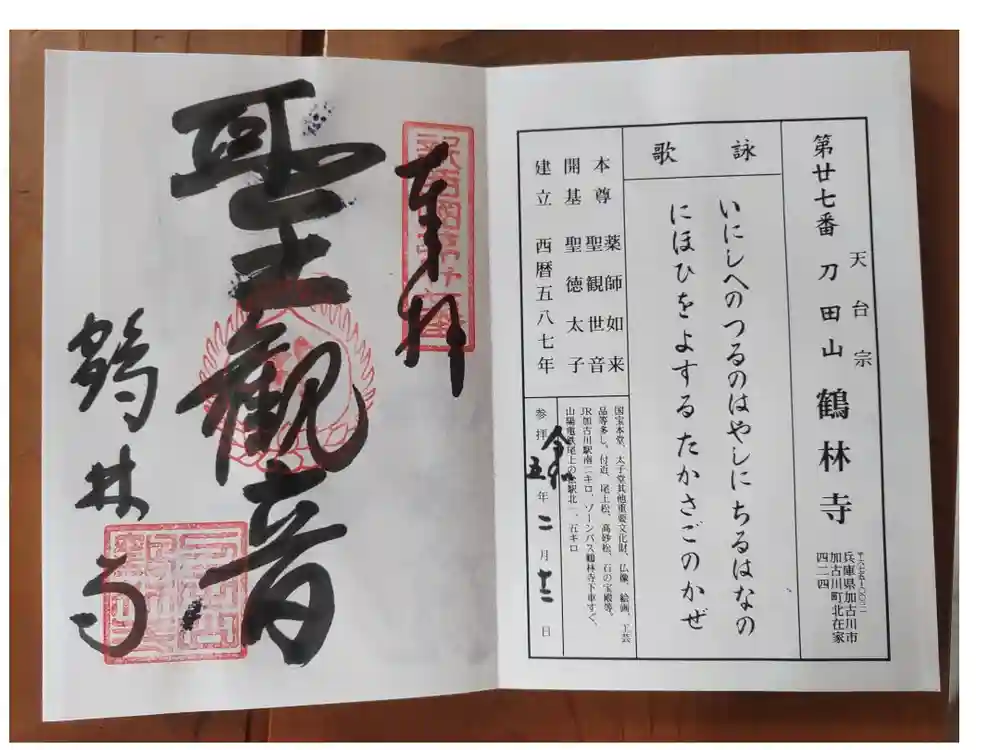 天台宗
第廿七番 刀田山 鶴林寺
〒六七五-〇〇三一
兵庫県加古川市
加古川町北在家
四二四
詠歌
いにしへのつるのはやしにちるはなの
にほひをよするたかさごのかぜ
本尊 薬師如来
聖観世音
開基 聖徳太子
建立 西暦五八七年
国宝本堂、太子堂其他重要文化財、仏像、絵画、工芸
品等多し。付近、尾上松、高砂松、石の宝殿等。
JR加古川駅南二キロ、ゾーンバス鶴林寺下車すぐ、
山陽電鉄尾上の松駅北一、五キロ
参拝 令和五年二月十二日
奉拝
聖觀音
鶴林寺